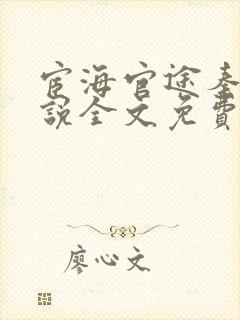 宦海官途秦
說全文免費
廖心文